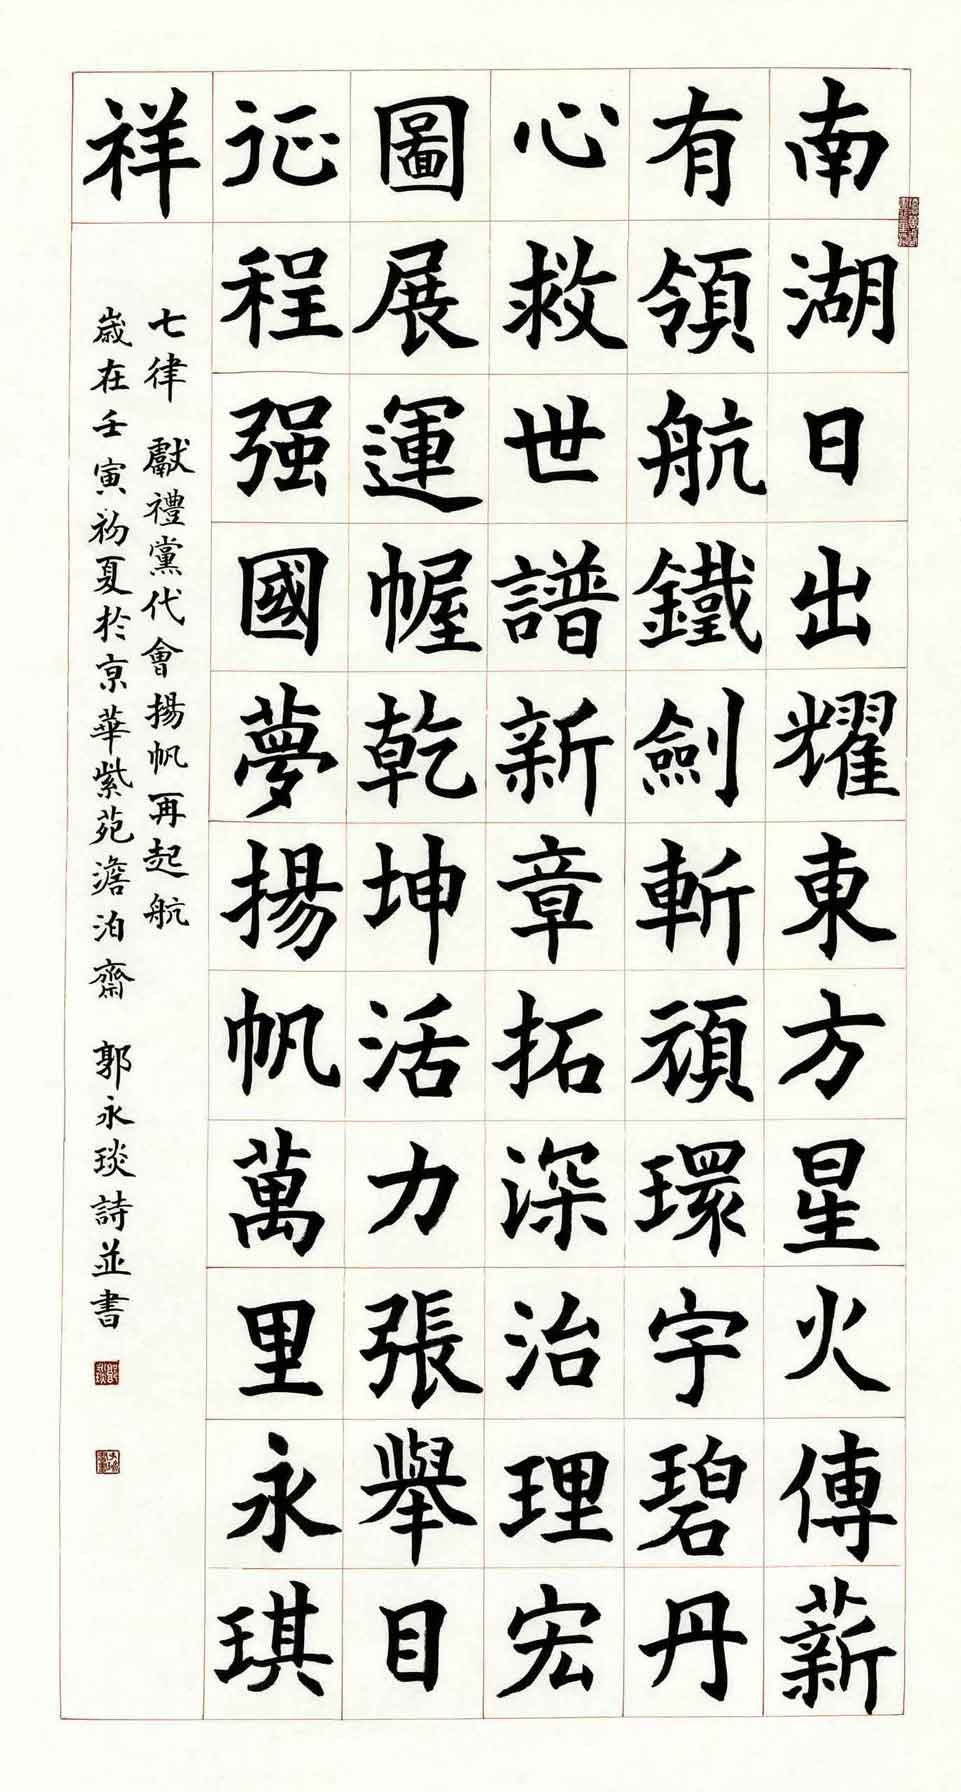 南湖日出耀東方星火傳薪
有領航鐵劍斬頑環宇碧丹
心救世譜新章拓深治理宏
圖展運幄乾坤活力張舉目
征程强國夢揚帆萬里永琪
祥
七律 獻禮黨代會揚帆再起航
歲在壬寅初夏於京華紫苑澹泊齋 郭永琰詩並書